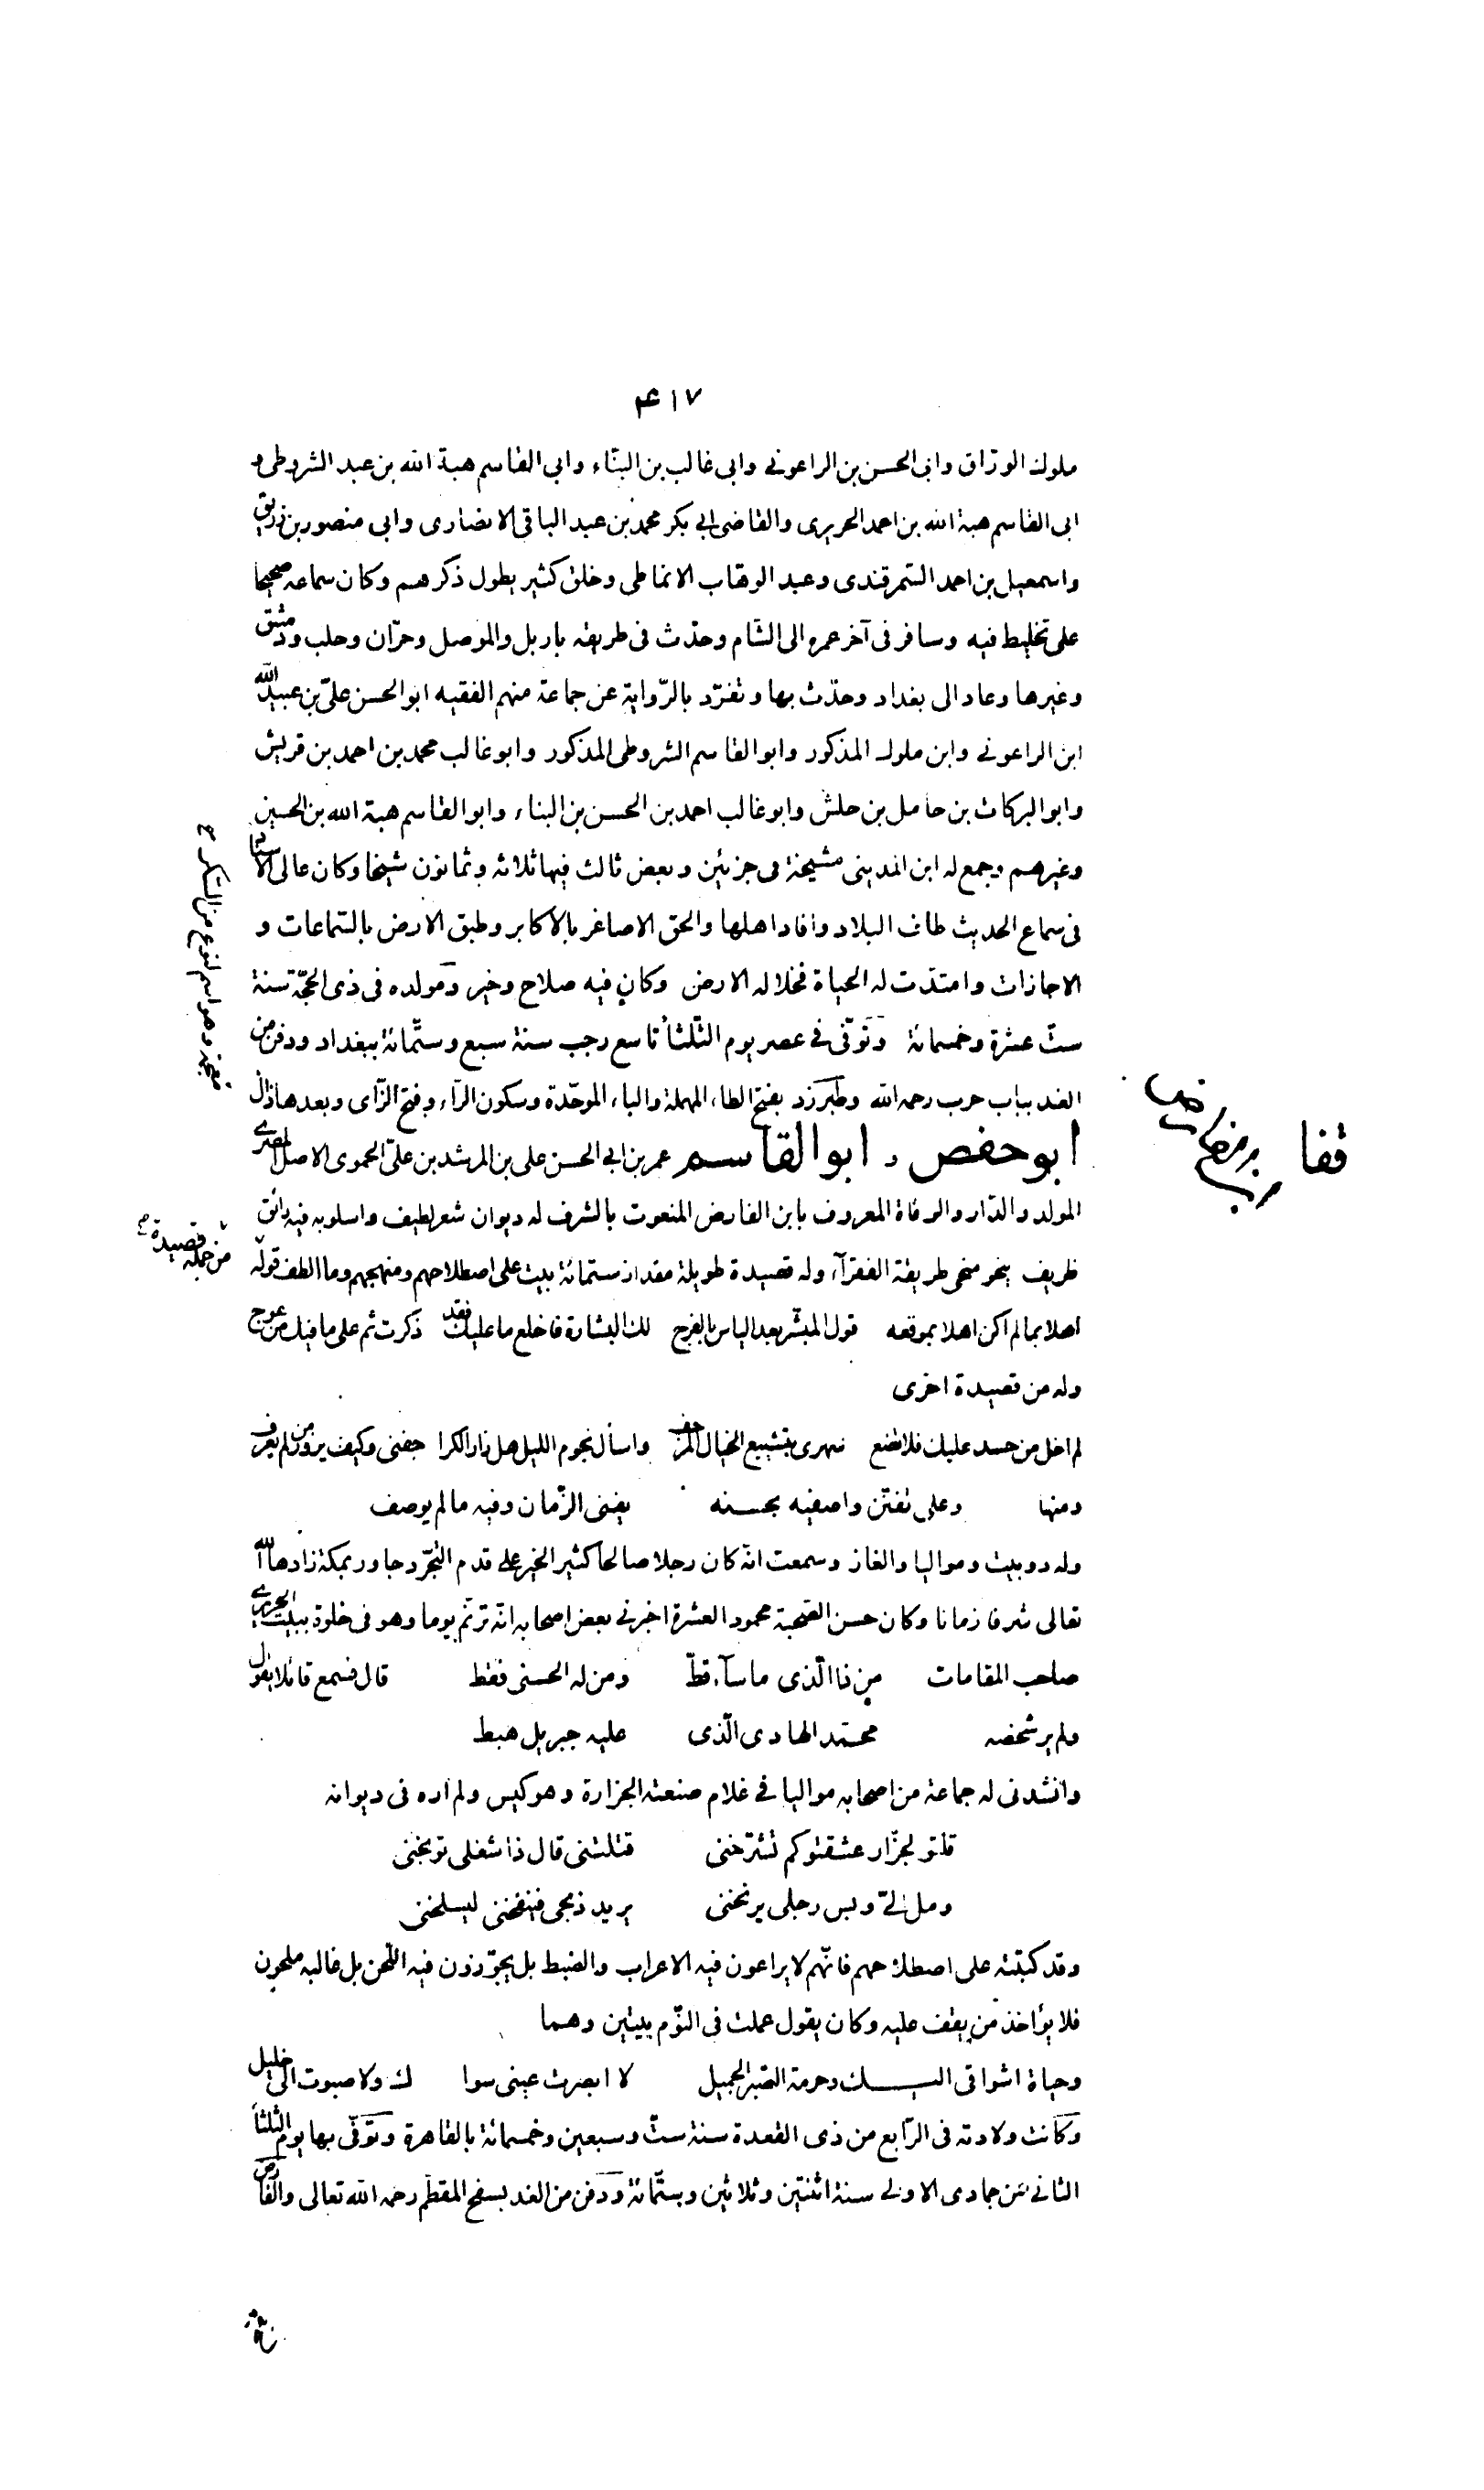 ۴۱۷
ملوك الوراق وابى الحسن بن الراعونے وابى غالب بن البنّاء وابى القاسم هبة الله بن عبد الشروطى و
ابى القاسم هبة الله بن احمد الحريرى والقاضى ابى بكر محمد بن عبد الباقى الانصارى وابى منصور بن زريق
واسمعيل بن احمد السّمرقندى وعبد الوهاب الانماطى وخلق كثير يطول ذكرهم وكان سماعه صحيحا
على تخليط فيه وسافر فى آخر عمره الى الشام وحدّث فى طريقه باربل والموصل وحرّان وحلب ودمشق
وغيرها وعاد الى بغداد وحدّث بها وتفرّد بالرّواية عن جماعة منهم الفقيه ابو الحسن علىّ بن عبيد الله
ابن الراعونے وابن ملوك المذكور وابو القاسم الشروطى المذكور وابو غالب محمد بن احمد بن قريش
وابو البركات بن حامل بن حلش وابو غالب احمد بن الحسن بن البناء وابو القاسم هبة الله بن الحسين
وغيرهم وجمع له ابن المدينى مشيخة فى جزئين وبعض ثالث فيها ثلاثه وثمانون شيخا وكان عالى الاسنا
فى سماع الحديث طاف البلاد وافاد اهلها والحق الاصاغر بالاكابر وطبق الارض بالسّماعات و
الاجازات وامتدّت له الحياة فخلا له الارض وكان فيه صلاح وخير ومولده فى ذى الحجّة سنة
ستّ عشرة وخمسمائة وتوفّى فے عصر يوم الثّلثا تاسع رجب سنة سبع وستّمائة ببغداد ودفن من
الغد بباب حرب رحمه الله وطبرزد بفتح الطاء المهملة والباء الموحّدة وسكون الرّاء وفتح الزّاى وبعدها ذال
معجمة وهو اسم لنوع من السّكر ح
ابو حفص و ابو القاسم عمر بن ابى الحسن على بن المرشد بن علىّ الحموى الاصل المصرے
المولد والدّار والوفاة المعروف بابن الفارض المنعوت بالشرف له ديوان شعر لطيف واسلوبه فيه رائق
ظريف ينحو منحى طريقة الفقرآء وله قصيدة طويلة مقدار ستمائة بيت على اصطلاحهم ومنهجهم وما الطف قوله
من جملة قصيدة
اهلا بما لم اكن اهلا بموقعه قول المبشّر بعد الياس بالفرج لك البشارة فاخلع ما عليك فقد ذكرت ثم على ما فيك من عوج
وله من قصيدة اخرى
لم اخل من حسد عليك فلا تضع سهرى بتشييع الخيال المرجف واسأل نجوم الليل هل زار الكرا جفنى وكيف يزور من لم يعرف
ومنها وعلى تفنّن واصفيه بحسنه يفنى الزّمان وفيه ما لم يوصف
وله دوبيت ومواليا والغاز وسمعت انّه كان رجلا صالحا كثير الخير على قدم التّجرّد جاور بمكة زادها الله
تعالى شرفا زمانا وكان حسن الصّحبة محمود العشرة اخبرنے بعض اصحابه انّه ترنّم يوما وهو فى خلوة ببيت الحريرے
صاحب المقامات من ذا الّذى ما سآء قطّ ومن له الحسنى فقط قال فسمع قائلا يقول
ولم ير شخصه محمّد الهادى الّذى عليه جبريل هبط
وانشدنى له جماعة من اصحابه مواليا فے غلام صنعته الجزارة وهو كيس ولم اره فى ديوانه
قلتو لجزّار عشقتو كم تشرّحنى قتلتنى قال ذا شغلى توبخنى
ومل الىّ وبس رجلى يرنحنى يريد ذبحى فينفخنى ليسلخنى
وقد كتبته على اصطلاحهم فانّهم لا يراعون فيه الاعراب والضبط بل يجوّزون فيه اللّحن بل غالبه ملحون
فلا يؤاخذ من يقف عليه وكان يقول عملت فى النّوم بيتين وهما
وحياة اشواقى اليك وحرمة الصّبر الجميل لا ابصرت عينى سوا ك ولا صبوت الى خليل
وكانت ولادته فى الرّابع من ذى القعدة سنة ستّ وسبعين وخمسمائة بالقاهرة وتوفّى بها يوم الثلثا
الثانے من جمادى الاولى سنة اثنتين وثلاثين وستّمائة ودفن من الغد بسفح المقطّم رحمه الله تعالى والفارض